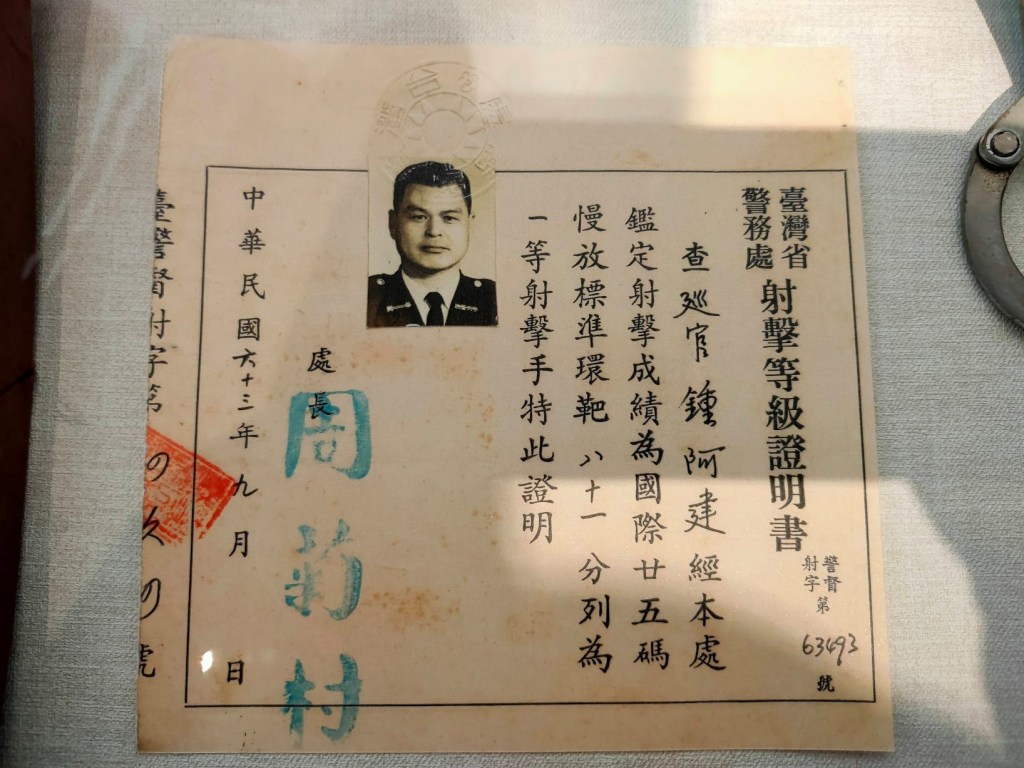 臺灣省
警務處
射擊等級證明書
警督
射字
第
63493
號
查巡官鍾阿建經本處
鑑定射擊成績為國際廿五碼
慢放標準環靶八十一分列為
一等射擊手特此證明
處長
周菊村
中華民國六十三年九月 日